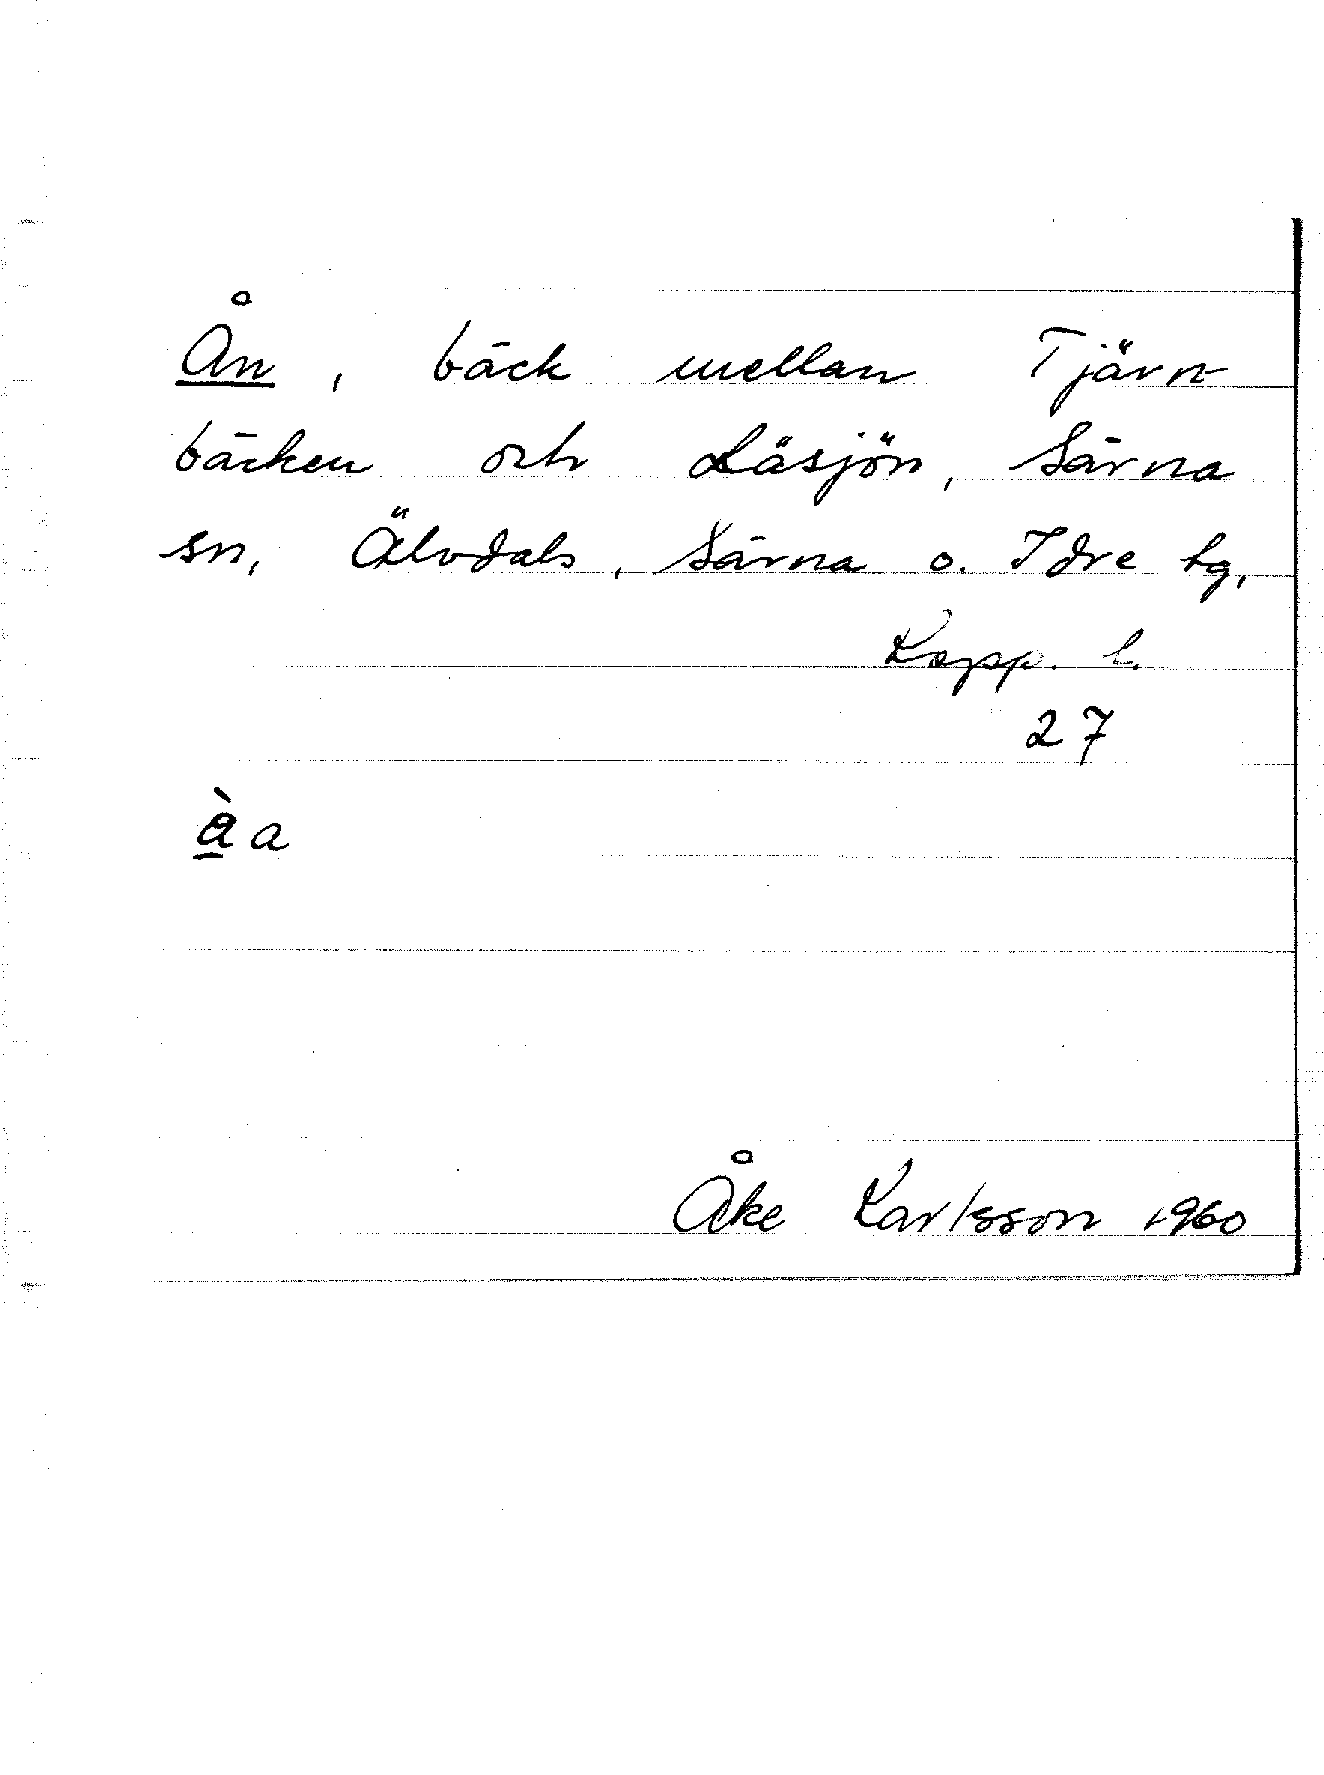 Ån, bäck mellan Tjärn
bäcken och Läsjön, Särna
sn, Älvdals, Särna o. Idre tg,
Kopp. l.
27
åa
Åke Karlsson 1960